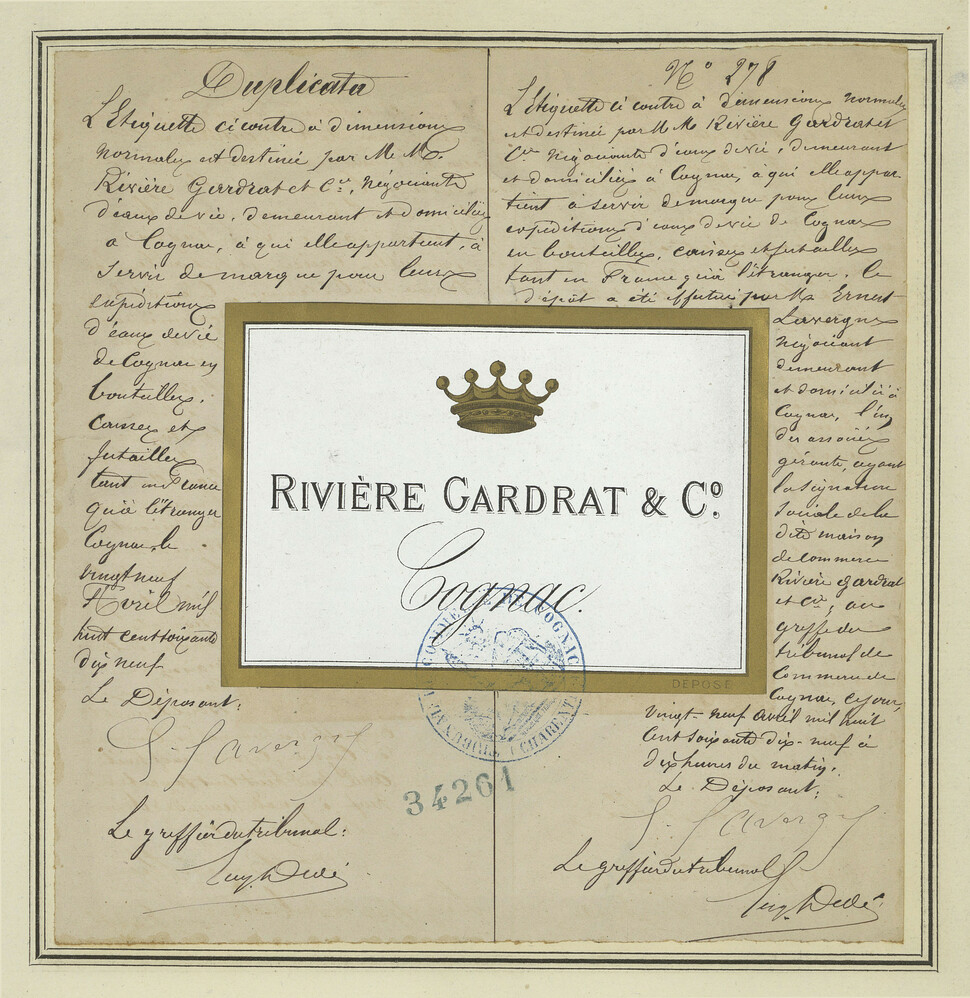 Duplicata
L'Etiquette ci contre à dimensions
normales est destinée par M M.
Rivière Gardrat et Cie, Négociants
d'eaux de vie, demeurant et domiciliés
a Cognac, à qui elle appartient, à
servir de marque pour leurs
expéditions
d'eaux de vie
de Cognac en
bouteilles,
caisses et
futailles
tant en France
qu'à l'étranger
Cognac, le
vingt neuf
Avril mil
huit cent soixante
dix neuf
Le Déposant:
E. Lavergne
Le greffier du tribunal:
N° 278
L'Etiquette ci contre à dimensions normales
est destinée par M M Rivière Gardrat et
Cie Négociants d'eaux de vie, demeurant
et domiciliés à Cognac, a qui elle appar-
tient à servir de marque pour leurs
expéditions d'eaux de vie de Cognac
en bouteilles, caisses et futailles
tant en France qu'à l'étranger. le
dépôt a été effectué par Mr Ernest
Lavergne
Négociant
demeurant
et domicilié à
Cognac, l'un
des associés
gérants, ayant
la signature
sociale de la
dite maison
de commerce
Rivière Gardrat
et Cie, au
greffe du
tribunal de
Commerce de
Cognac, ce jour,
vingt-neuf avril mil huit
cent soixante dix-neuf à
dix heures du matin.
Le Déposant:
E. Lavergne
Le greffier du tribunal
RIVIÈRE GARDRAT & Co.
Cognac.
DÉPOSÉ
TRIBUNAL DE COMMERCE DE COGNAC CHARENTE
34261